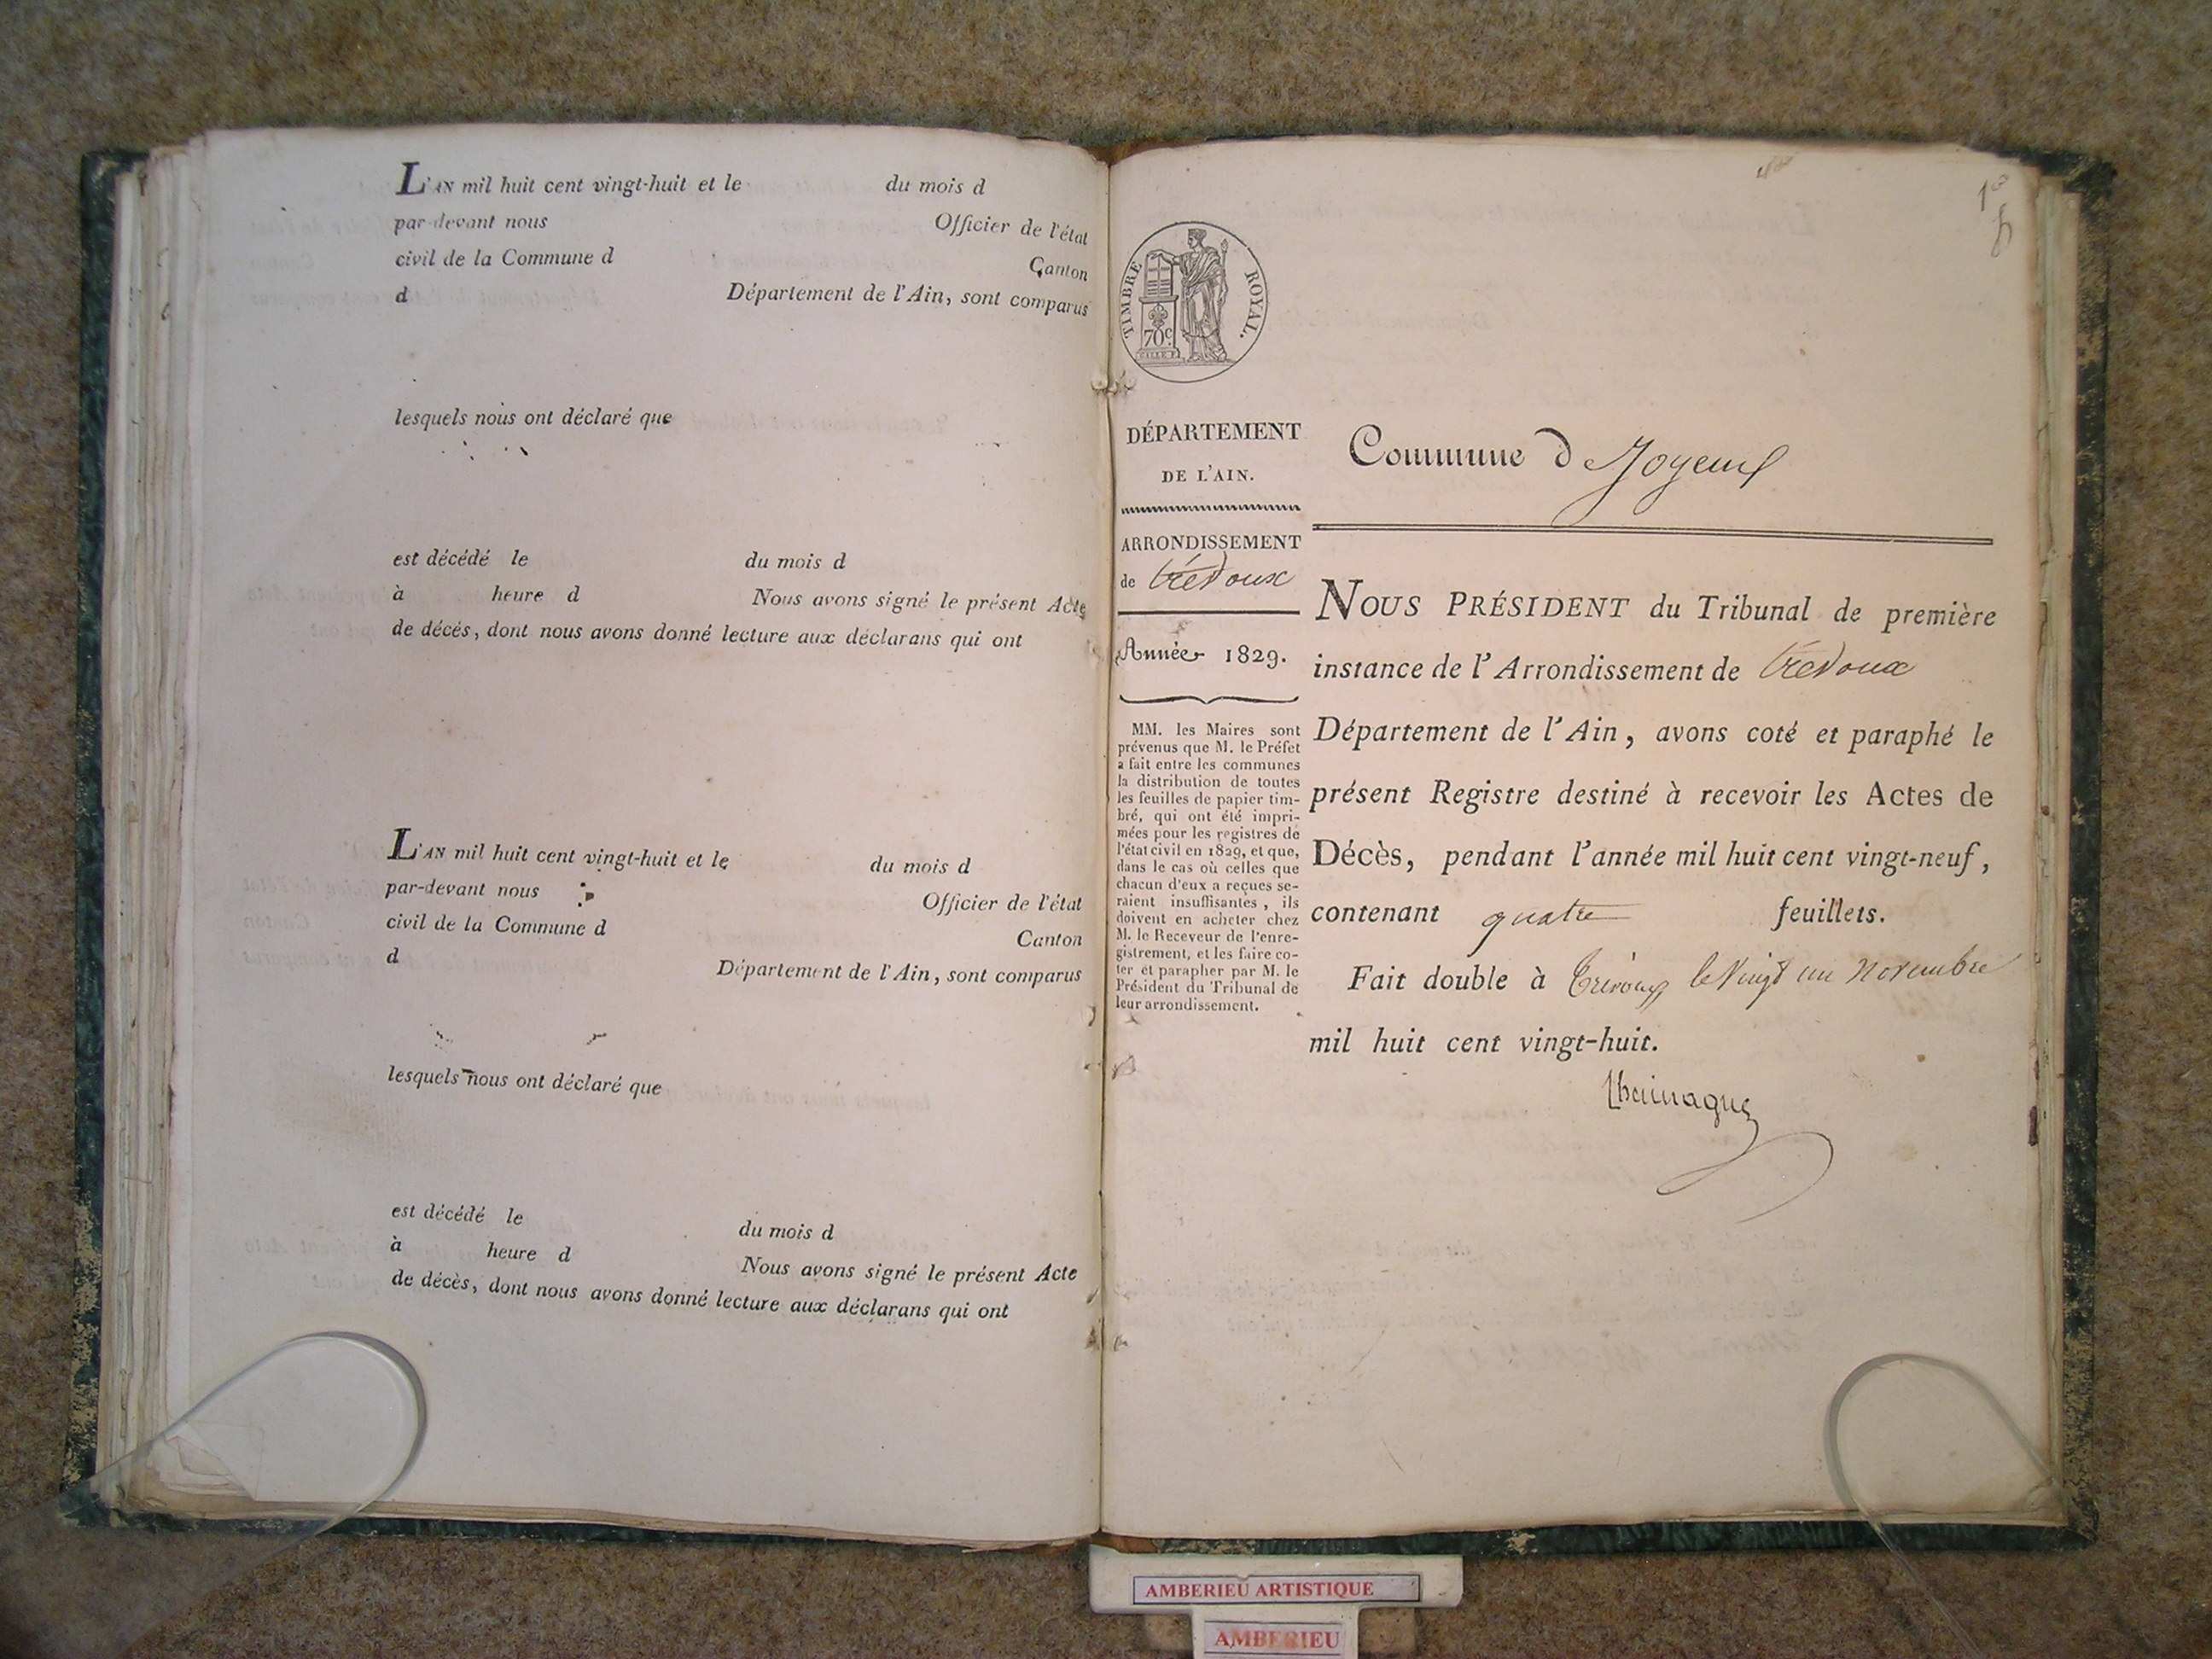 L'AN mil huit cent vingt-huit et le du mois d
par-devant nous Officier de l'état
civil de la Commune d Canton
d Département de l'Ain, sont comparus
lesquels nous ont déclaré que
est décédé le du mois d
à heure d Nous avons signé le présent Acte
de décès, dont nous avons donné lecture aux déclarans qui ont
L'AN mil huit cent vingt-huit et le du mois d
par-devant nous Officier de l'état
civil de la Commune d Canton
d Département de l'Ain, sont comparus
lesquels nous ont déclaré que
est décédé le du mois d
à heure d Nous avons signé le présent Acte
de décès, dont nous avons donné lecture aux déclarans qui ont
TIMBRE ROYAL.
70c
DÉPARTEMENT
DE L'AIN.
ARRONDISSEMENT
de Trévoux
Année 1829.
MM. les Maires sont
prévenus que M. le Préfet
a fait entre les communes
la distribution de toutes
les feuilles de papier tim-
bré, qui ont été impri-
mées pour les registres de
l'état civil en 1829, et que,
dans le cas où celles que
chacun d'eux a reçues se-
raient insuffisantes, ils
doivent en acheter chez
M. le Receveur de l'enre-
gistrement, et les faire co-
ter et parapher par M. le
Président du Tribunal de
leur arrondissement.
Commune d Joyeux
NOUS PRÉSIDENT du Tribunal de première
instance de l'Arrondissement de Trévoux
Département de l'Ain, avons coté et paraphé le
présent Registre destiné à recevoir les Actes de
Décès, pendant l'année mil huit cent vingt-neuf,
contenant quatre feuillets.
Fait double à Trévoux le vingt un novembre
mil huit cent vingt-huit.
AMBERIEU ARTISTIQUE
AMBERIEU